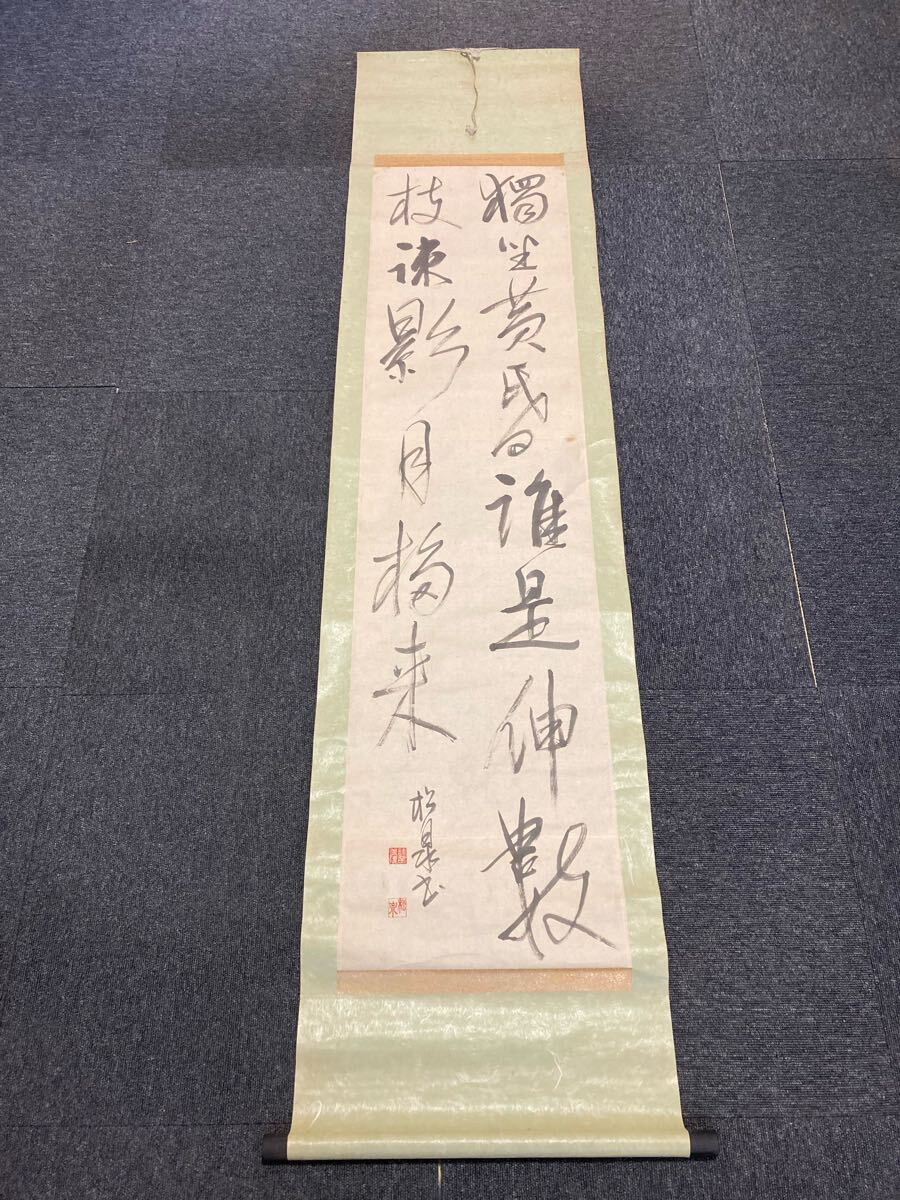 獨坐黄昏誰是伴數
枝疎影月移来
松泉书